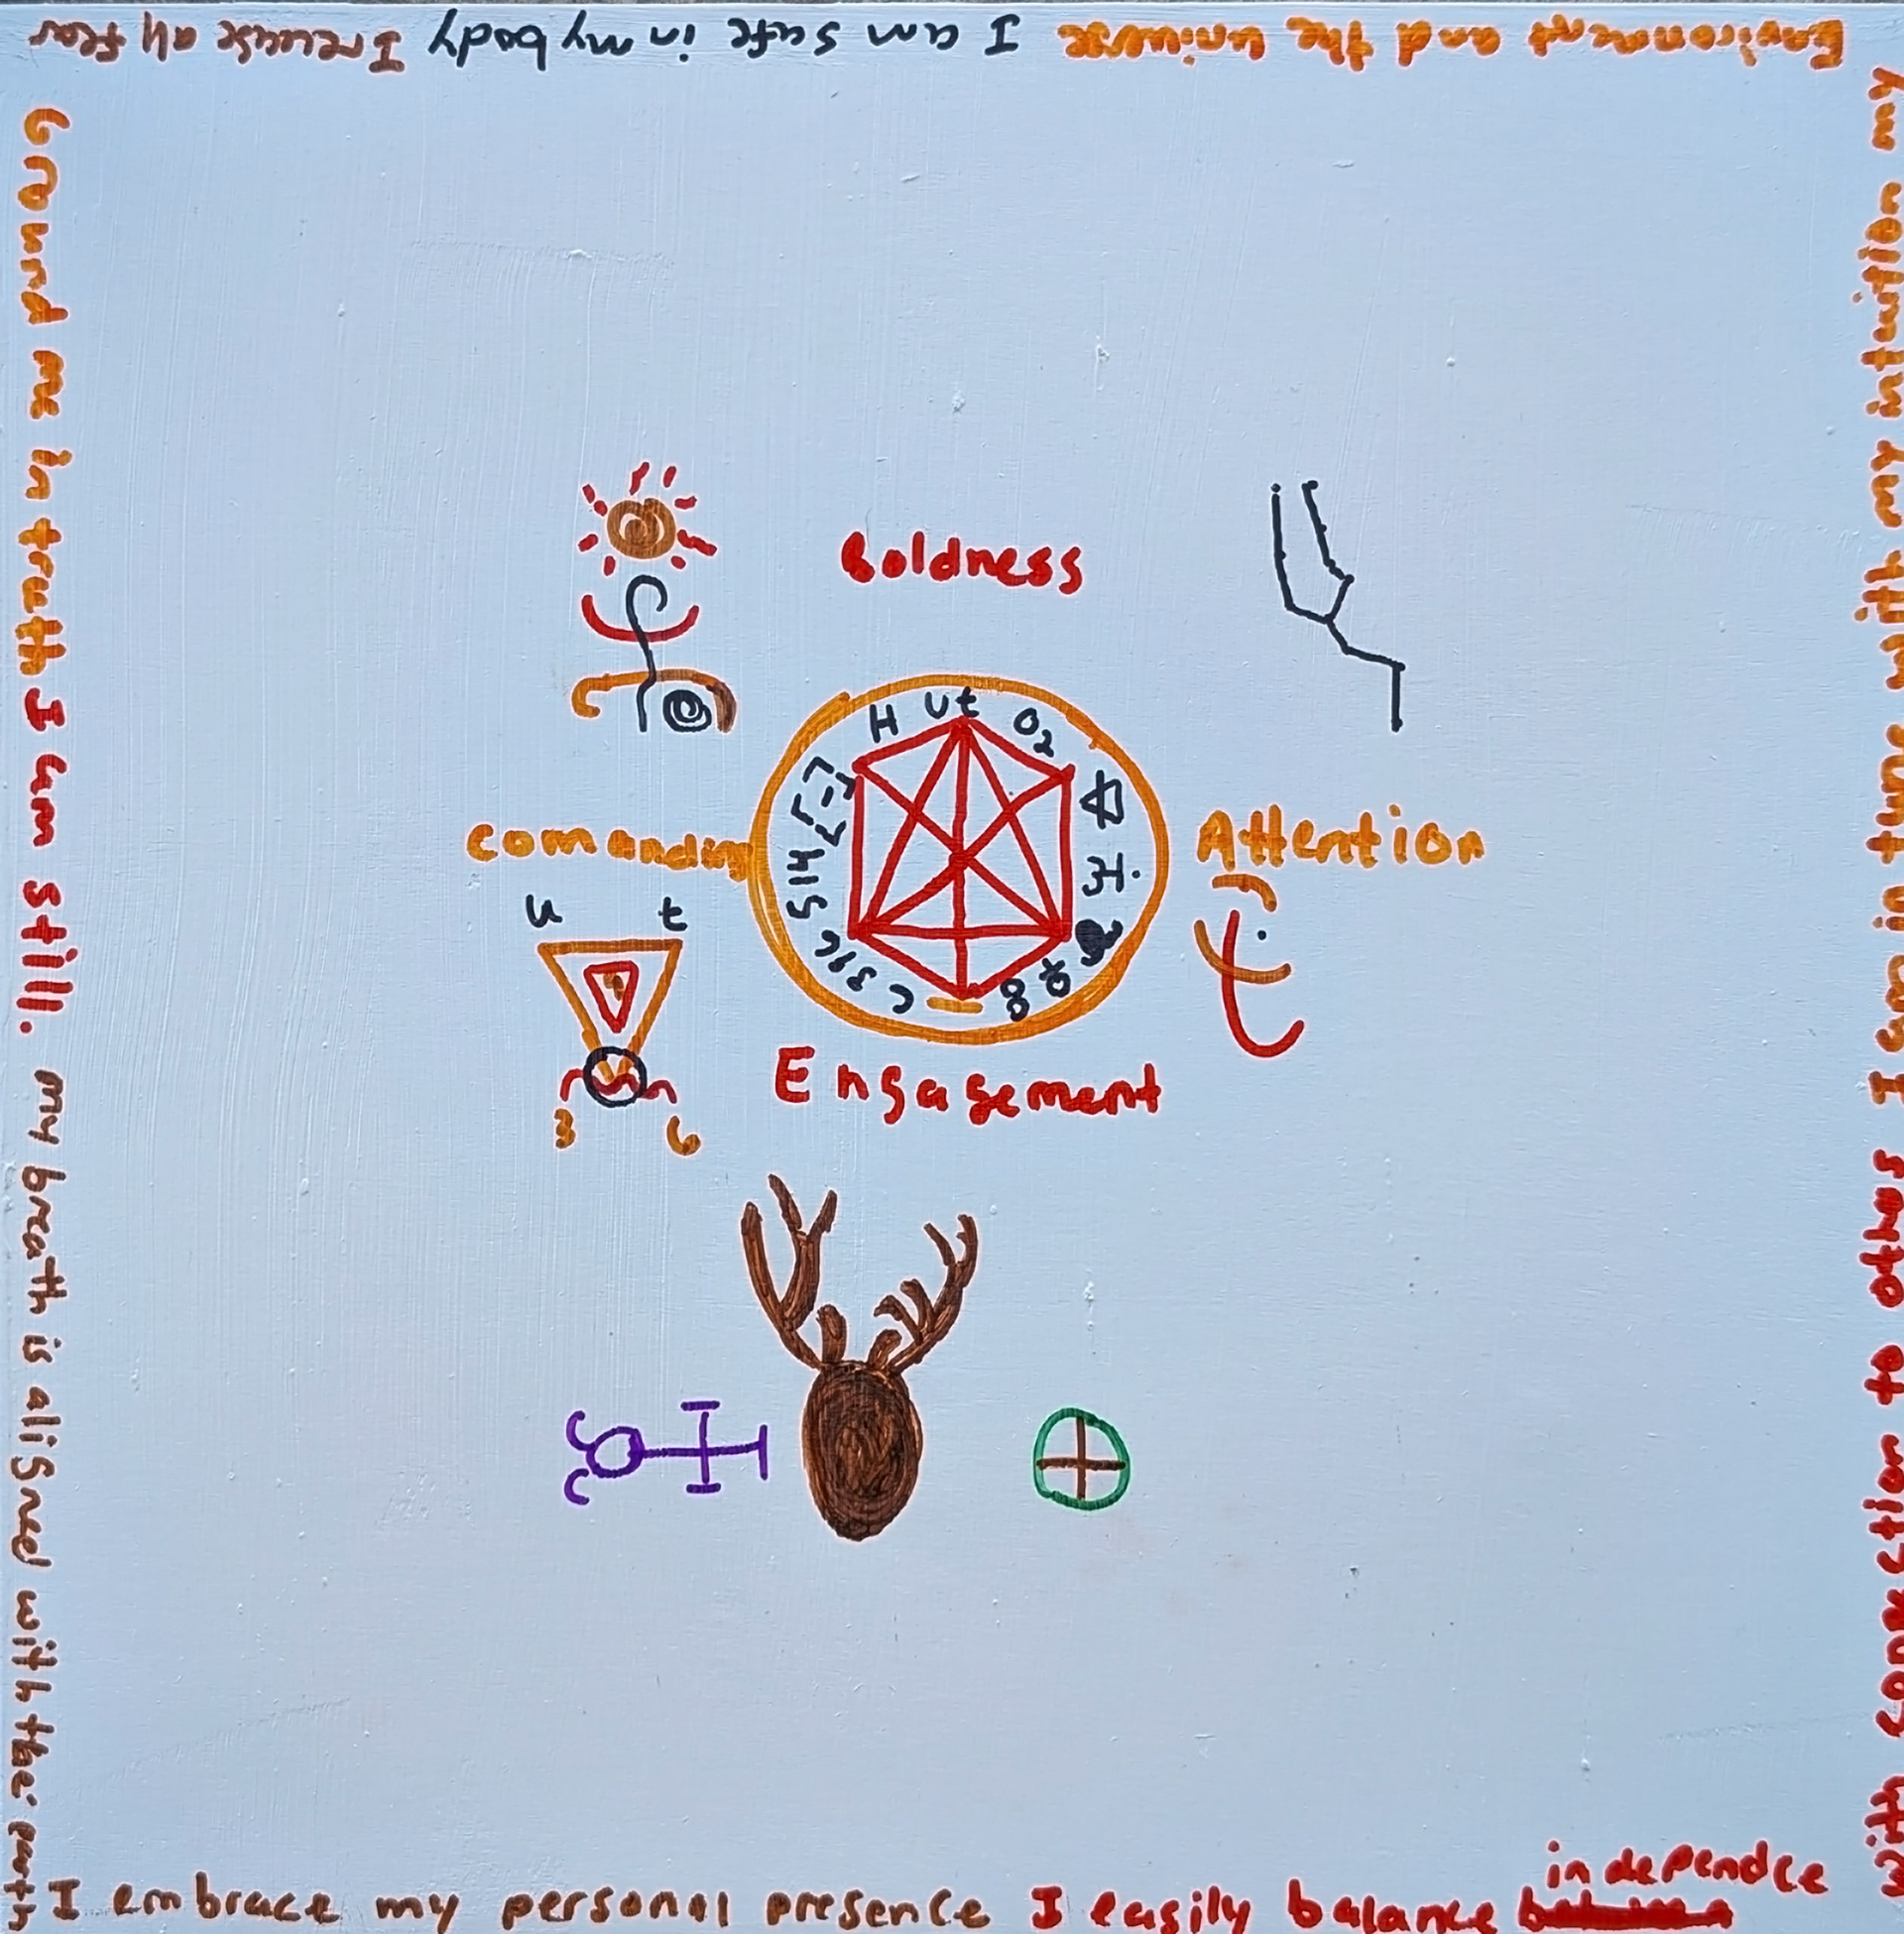 Environment and the universe I am safe in my body I release all fear
Ground me in truth I am still. my breath is aligned with the earth
I embrace my personal presence I easily balance
independce
with connection to others I am in tune with my intuition my
Boldness
Comanding
Attention
Engagement
H Ut O2
U t